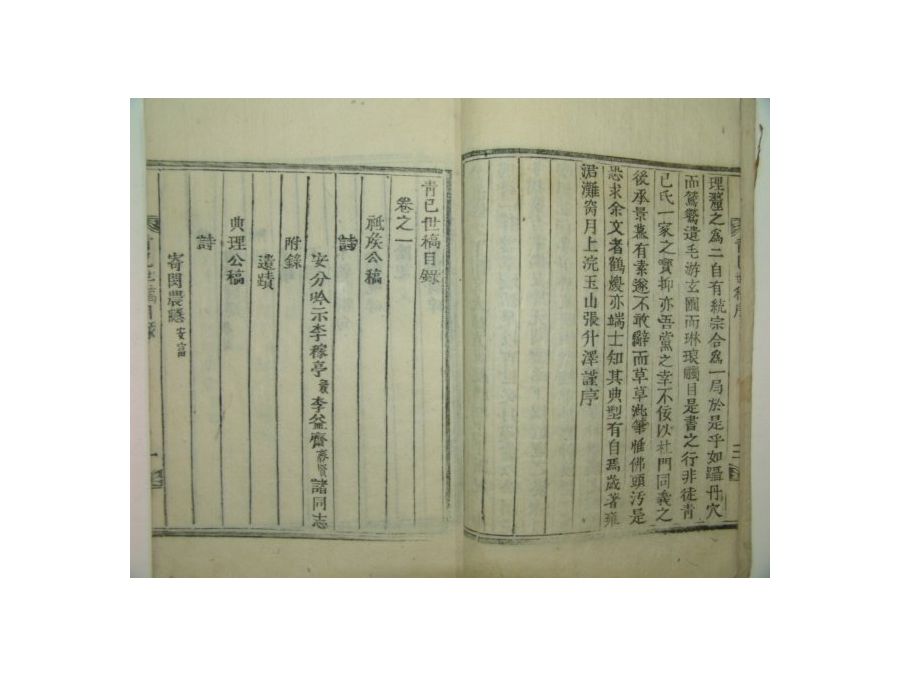 理釐之為二自有統宗合為一局於是乎如躡丹穴
而鸑鷟遺毛游玄圃而琳琅觸目是書之行非徒青
已氏一家之寶抑亦吾黨之幸不佞以杜門同義之
後承景慕有素遂不敢辭而草草泚筆惟佛頭汚是
恐求余文者鶴燮亦端士知其典型有自焉歲著雍
涒灘窩月上浣玉山張升澤謹序
青已世稿目錄
卷之一
祗矦公稿
詩
安分吟示李稼亭 李益齋 齊賢 諸同志
附錄
遺蹟
典理公稿
詩
寄閔農隱 安富